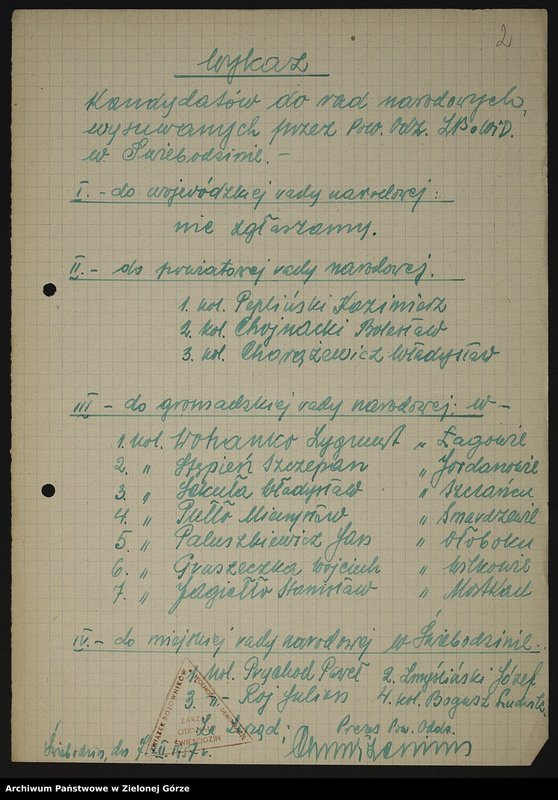 2
Wykaz
Kandydatów do rad narodowych,
wysuwanych przez Pow. Odz. ZBoWiD.
w Świebodzinie. -
I. - do wojewódzkiej rady narodowej:
nie zgłaszamy.
II. - do powiatowej rady narodowej.
1. kol. Pepliński Kazimierz
2. kol. Chojnacki Bolesław
3. kol. Charążewicz Władysław
III - do gromadzkiej rady narodowej: w -
1. kol. Wohanko Zygmunt „ Łagowie
2. „ Stępień Szczepan „ Jordanowie
3. „ Sekuła Władysław „ Szczańcu
4. „ Pidło Mieczysław „ Smardzewie
5. „ Paluszkiewicz Jan „ Ołoboku
6. „ Gruszeczka Wojciech „ Wilkowie
7. „ Jagiełło Stanisław „ Mostkach
IV. - do miejskiej rady narodowej w Świebodzinie.
1. kol. Przychod Paweł 2. Zmyśliński Józef
3. „ - Roj Julian 4. kol. Bogusz Ludwik.
Za Zarząd: Prezes Pow. Oddz.
ZWIĄZEK BOJOWNIKÓW O WOLNOŚĆ I DEMOKRACJĘ
ZARZĄD
ODDZIAŁ
ŚWIEBODZIN
Świebodzin, dn.
Archiwum Państwowe w Zielonej Górze